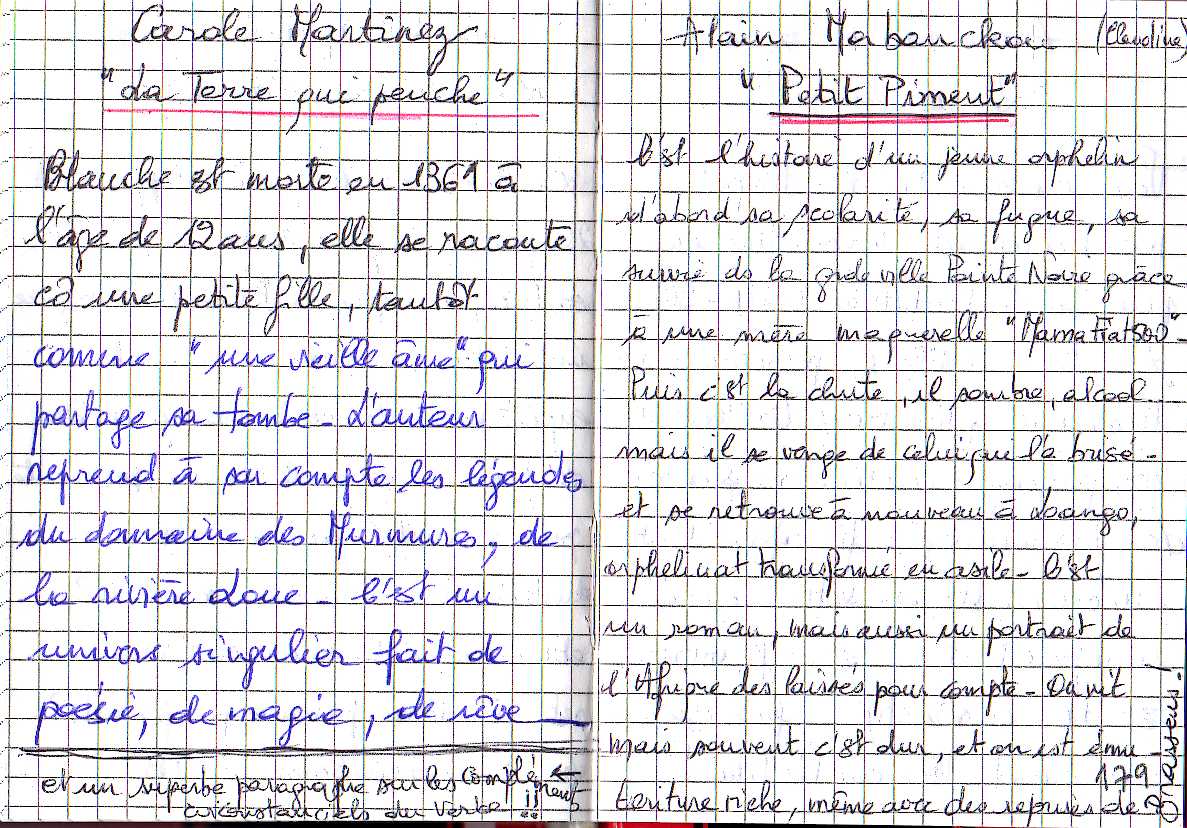 Carole Martinez
"La Terre qui penche"
Blanche est morte en 1361 à
l'âge de 12 ans, elle se raconte
cô une petite fille, tantôt
comme "une vieille âme" qui
partage sa tombe - L'auteur
reprend à son compte les légendes
du domaine des Murmures, de
la rivière Loue - C'est un
univers singulier fait de
poésie, de magie, de rêve
et un superbe paragraphe sur les complé ←
ments
circonstanciels du verbe !!
Alain Mabanckou (Claudine)
"Petit Piment"
C'est l'histoire d'un jeune orphelin
d'abord sa scolarité, sa fugue, sa
survie ds la grde ville Pointe Noire grâce
à une mère maquerelle "Mama Fiat 500" -
Puis c'est la chute, il sombre, alcool -
mais il se venge de celui qui l'a brisé -
et se retrouve à nouveau à Loango,
orphelinat transformé en asile - C'est
un roman, mais aussi un portrait de
l'Afrique des laissés pour compte - On rit
mais souvent c'est dur, et on est ému -
179
Ecriture riche, même avec des reprises de
Brassens !